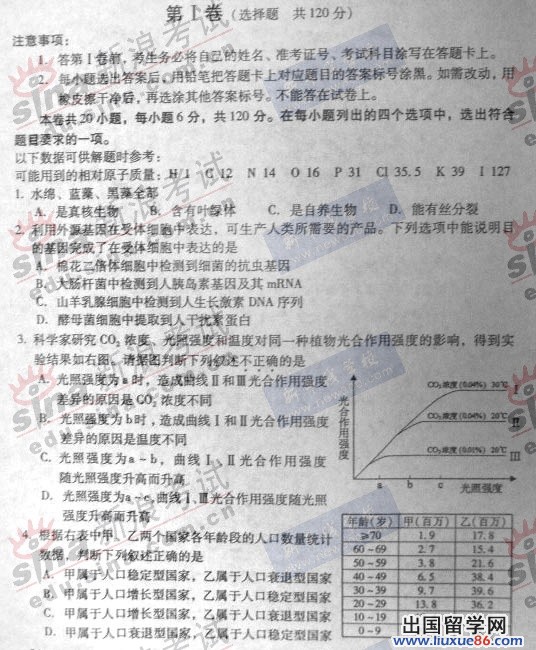 第Ⅰ卷(选择题 共120分)
注意事项：
1. 答第Ⅰ卷前，考生务必将自己的姓名、准考证号、考试科目涂写在答题卡上。
2. 每小题选出答案后，用铅笔把答题卡上对应题目的答案标号涂黑。如需改动，用
橡皮擦干净后，再选涂其他答案标号。不能答在试卷上。
本卷共20小题，每小题6分，共120分。在每小题列出的四个选项中，选出符合
题目要求的一项。
以下数据可供解题时参考：
可能用到的相对原子质量：H 1 C 12 N 14 O 16 P 31 Cl 35.5 K 39 I 127
1. 水绵、蓝藻、黑藻全部
A. 是真核生物 B. 含有叶绿体 C. 是自养生物 D. 能有丝分裂
2. 利用外源基因在受体细胞中表达，可生产人类所需要的产品。下列选项中能说明目
的基因完成了在受体细胞中表达的是
A. 棉花二倍体细胞中检测到细菌的抗虫基因
B. 大肠杆菌中检测到人胰岛素基因及其mRNA
C. 山羊乳腺细胞中检测到人生长激素DNA序列
D. 酵母菌细胞中提取到人干扰素蛋白
3. 科学家研究CO₂浓度、光照强度和温度对同一种植物光合作用强度的影响，得到实
验结果如右图。请据图判断下列叙述不正确的是
A. 光照强度为a时，造成曲线Ⅱ和Ⅲ光合作用强度
差异的原因是CO₂浓度不同
B. 光照强度为b时，造成曲线Ⅰ和Ⅱ光合作用强度
差异的原因是温度不同
C. 光照强度为a～b，曲线Ⅰ、Ⅱ光合作用强度
随光照强度升高而升高
D. 光照强度为a～c，曲线Ⅰ、Ⅲ光合作用强度随光照
强度升高而升高
光合作用强度
CO₂浓度(0.04%) 30℃ Ⅰ
CO₂浓度(0.04%) 20℃ Ⅱ
CO₂浓度(0.01%) 20℃ Ⅲ
a b c 光照强度
4. 根据右表中甲、乙两个国家各年龄段的人口数量统计
数据，判断下列叙述正确的是
A. 甲属于人口稳定型国家，乙属于人口衰退型国家
B. 甲属于人口增长型国家，乙属于人口稳定型国家
C. 甲属于人口增长型国家，乙属于人口衰退型国家
D. 甲属于人口衰退型国家，乙属于人口稳定型国家
年龄(岁) 甲(百万) 乙(百万)
≥70 1.9 17.8
60～69 2.7 15.4
50～59 3.8 21.6
40～49 6.5 38.4
30～39 9.7 39.6
20～29 13.8 36.2
10～19
0～9
出国留学网
www.liuxue86.com
sina 新浪考试